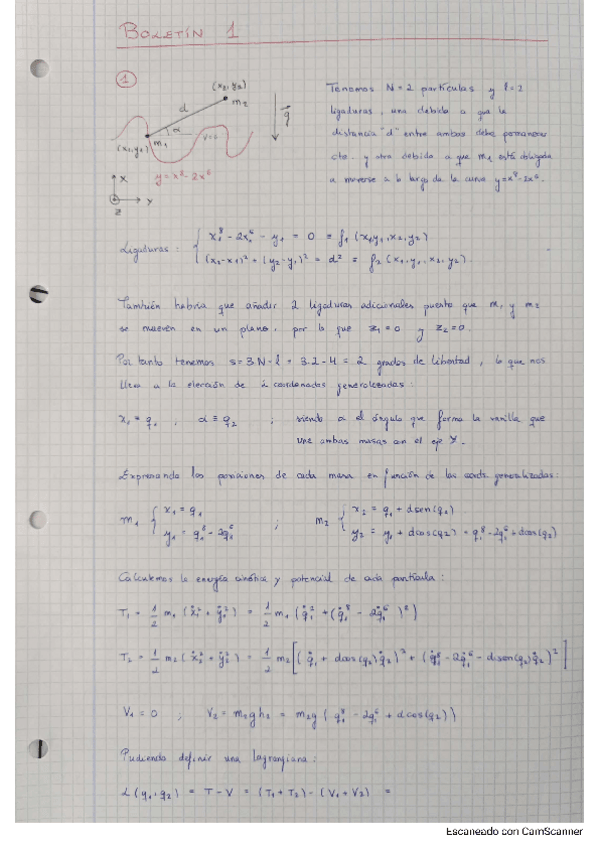 BOLETÍN 1
1
(x₂, y₂)
d
m₂
α
m₁
(x₁, y₁)
V=0
g
y = x⁸ - 2x⁶
x
y
z
Tenemos N = 2 partículas y l = 2
ligaduras, una debida a que la
distancia "d" entre ambas debe permanecer
cte. y otra debido a que m₁ está obligada
a moverse a lo largo de la curva y=x⁸-2x⁶.
Ligaduras: { x₁⁸ - 2x₁⁶ - y₁ = 0 ≡ f₁ (x₁,y₁,x₂,y₂)
(x₂-x₁)² + (y₂-y₁)² = d² ≡ f₂ (x₁,y₁,x₂,y₂).
También habría que añadir 2 ligaduras adicionales puesto que m₁ y m₂
se mueven en un plano, por lo que z₁=0 y z₂=0.
Por tanto tenemos s = 3·N - l = 3·2 - 4 = 2 grados de libertad, lo que nos
lleva a la elección de 2 coordenadas generalizadas:
x₁ ≡ q₁ , α ≡ q₂ ; siendo α el ángulo que forma la varilla que
une ambas masas con el eje Y.
Expresando las posiciones de cada masa en función de las coords. generalizadas:
m₁ { x₁ = q₁ ; m₂ { x₂ = q₁ + d sen(q₂)
y₁ = q₁⁸ - 2q₁⁶ y₂ = y₁ + d cos(q₂) = q₁⁸ - 2q₁⁶ + d cos(q₂)
Calculemos la energía cinética y potencial de cada partícula:
T₁ = 1/2 m₁ (ẋ₁² + ẏ₁²) = 1/2 m₁ (q̇₁² + (q̇₁⁸ - 2q̇₁⁶)²)
T₂ = 1/2 m₂ (ẋ₂² + ẏ₂²) = 1/2 m₂ [(q̇₁ + d cos(q₂) q̇₂)² + (q̇₁⁸ - 2q̇₁⁶ - d sen(q₂) q̇₂)²]
V₁ = 0 ; V₂ = m₂gh₂ = m₂g (q₁⁸ - 2q₁⁶ + d cos(q₂))
Pudiendo definir una lagrangiana:
L(q₁, q₂) = T - V = (T₁ + T₂) - (V₁ + V₂) =
Escaneado con CamScanner